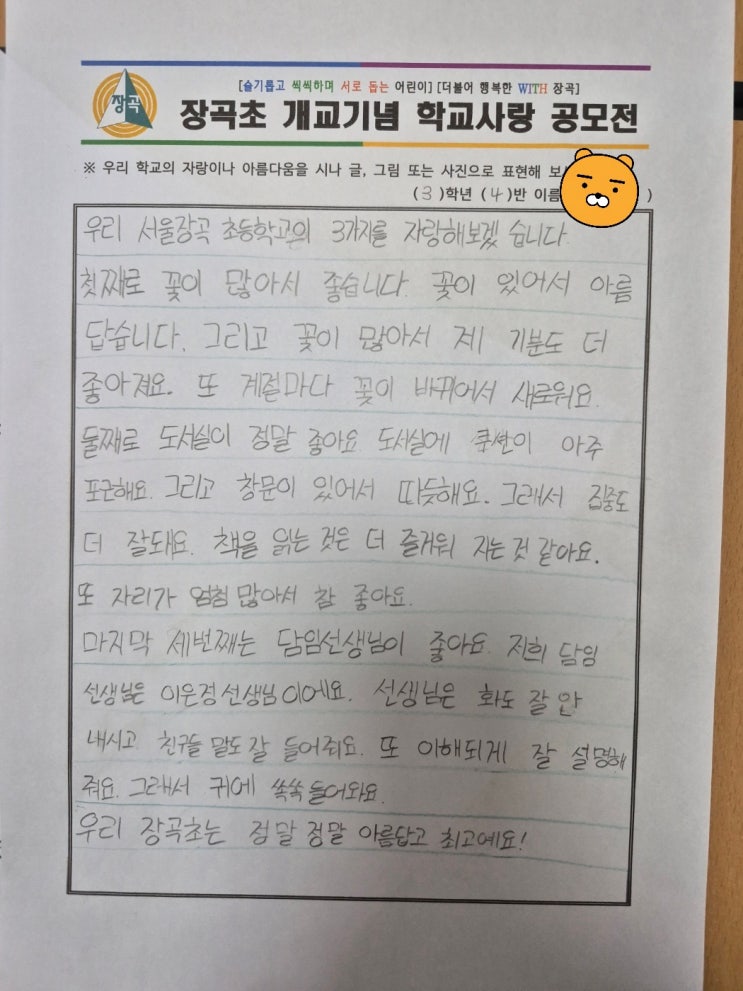 [슬기롭고 씩씩하며 서로 돕는 어린이] [더불어 행복한 WITH 장곡]
장곡
장곡초 개교기념 학교사랑 공모전
※ 우리 학교의 자랑이나 아름다움을 시나 글, 그림 또는 사진으로 표현해 보
( 3 )학년 ( 4 )반 이름 )
우리 서울장곡 초등학교의 3가지를 자랑해보겠 습니다.
첫째로 꽃이 많아서 좋습니다. 꽃이 있어서 아름
답습니다. 그리고 꽃이 많아서 제 기분도 더
좋아져요. 또 계절마다 꽃이 바뀌어서 새로워요.
둘째로 도서실이 정말 좋아요 도서실에 쿠션이 아주
포근해요. 그리고 창문이 있어서 따듯해요. 그래서 집중도
더 잘돼요. 책을 읽는 것은 더 즐거워 지는 것 같아요.
또 자리가 엄청 많아서 참 좋아요.
마지막 세번째는 담임선생님이 좋아요. 저희 담임
선생님은 이은정 선생님 이에요. 선생님은 화도 잘 안
내시고 친구들 말도 잘 들어줘요. 또 이해되게 잘 설명해
줘요. 그래서 귀에 쏙쏙 들어와요.
우리 장곡초는 정말 정말 아름답고 최고예요!